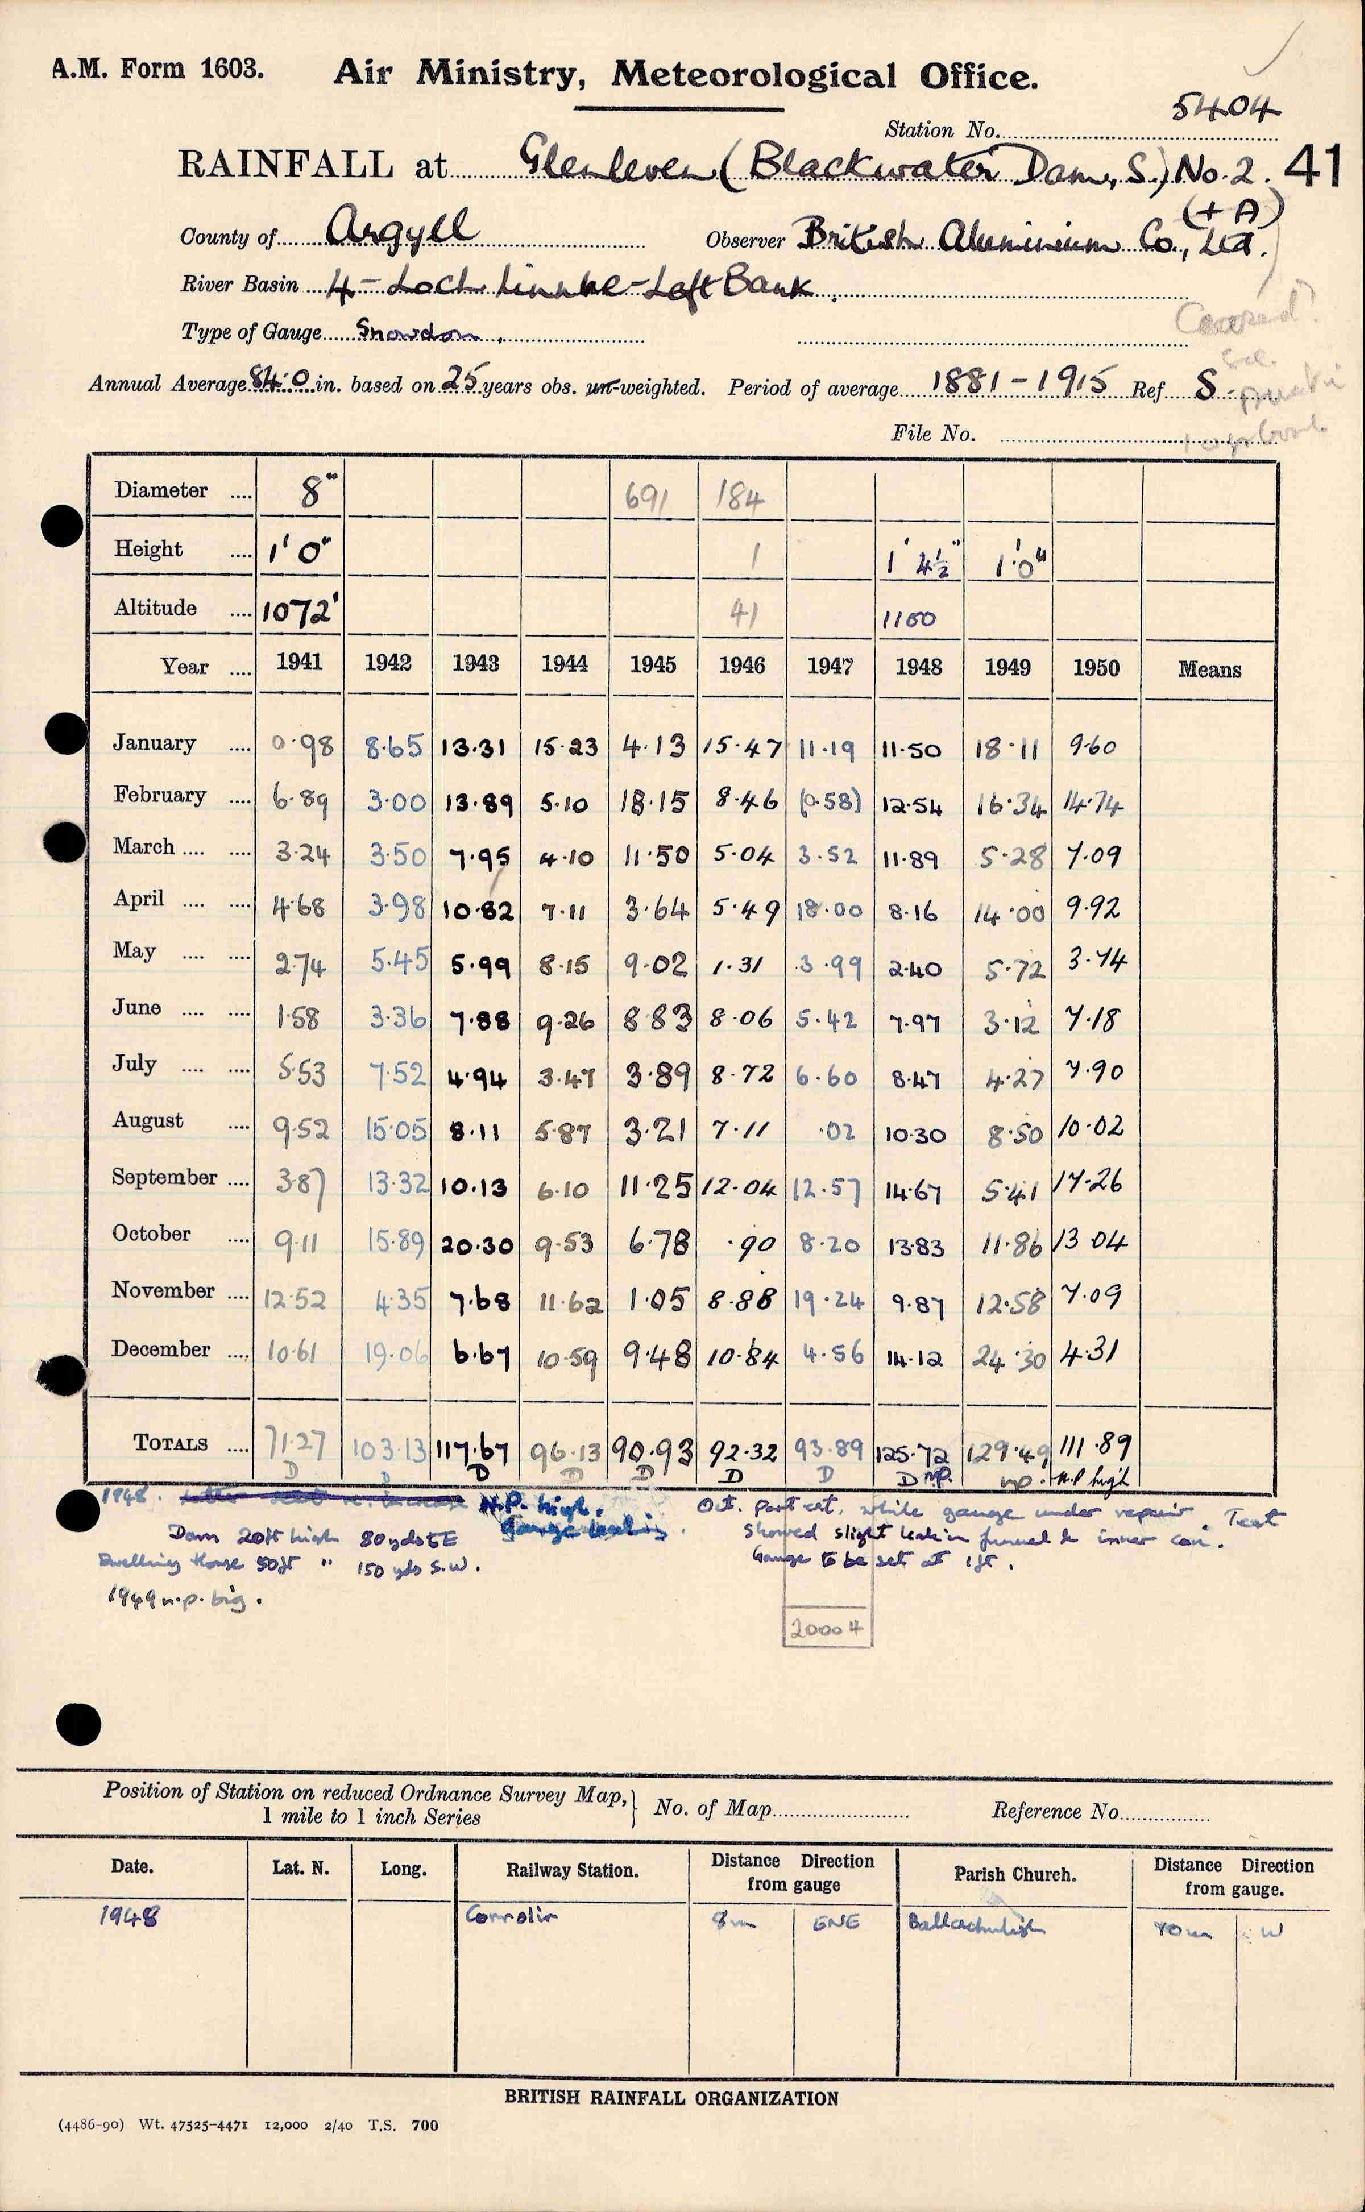 A.M. Form 1603. Air Ministry, Meteorological Office.
Station No. 5404
RAINFALL at Glenleven (Blackwater Dam, S.) No. 2. 41
(+ A)
County of Argyll Observer British Aluminium Co., Ltd.
River Basin 4 - Loch Linnhe - Left Bank.
Type of Gauge Snowdon.
Annual Average 84.0 in. based on 25 years obs. un-weighted. Period of average 1881-1915 Ref S.
File No.
Diameter .... 8" 691 184
Height .... 1' 0" 1 1' 4½" 1' 0"
Altitude .... 1072' 41 1150
Year .... 1941 1942 1943 1944 1945 1946 1947 1948 1949 1950 Means
January .... 0.98 8.65 13.31 15.23 4.13 15.47 11.19 11.50 18.11 9.60
February .... 6.89 3.00 13.89 5.10 18.15 8.46 (0.58) 12.54 16.34 14.74
March .... .... 3.24 3.50 7.95 4.10 11.50 5.04 3.52 11.89 5.28 7.09
April .... .... 4.68 3.98 10.82 7.11 3.64 5.49 18.00 8.16 14.00 9.92
May .... .... 2.74 5.45 5.99 8.15 9.02 1.31 3.99 2.40 5.72 3.74
June .... .... 1.58 3.36 7.88 9.26 8.83 8.06 5.42 7.97 3.12 7.18
July .... .... 5.53 7.52 4.94 3.47 3.89 8.72 6.60 8.47 4.27 7.90
August .... 9.52 15.05 8.11 5.87 3.21 7.11 .02 10.30 8.50 10.02
September .... 3.87 13.32 10.13 6.10 11.25 12.04 12.57 14.67 5.41 17.26
October .... 9.11 15.89 20.30 9.53 6.78 .90 8.20 13.83 11.86 13.04
November .... 12.52 4.35 7.68 11.62 1.05 8.88 19.24 9.87 12.58 7.09
December .... 10.61 19.06 6.67 10.59 9.48 10.84 4.56 14.12 24.30 4.31
TOTALS .... 71.27 103.13 117.67 96.13 90.93 92.32 93.89 125.72 129.49 111.89
D D D D D D D D n.p. n.p. n.p. high
1948. N.P. high. Oct. part est. while gauge under repair Test
Gauge leaking. showed slight leak in funnel & inner can.
Dam 20ft high 80 yds E Gauge to be set at 1ft.
Dwelling House 50ft " 150 yds S.W.
1949 n.p. big.
20004
Position of Station on reduced Ordnance Survey Map, 1 mile to 1 inch Series No. of Map Reference No.
Date. Lat. N. Long. Railway Station. Distance Direction from gauge Parish Church. Distance Direction from gauge.
1948 8m ENE Ballachulish 10m W
BRITISH RAINFALL ORGANIZATION
(4486-90) Wt. 47525-4471 12,000 2/40 T.S. 700